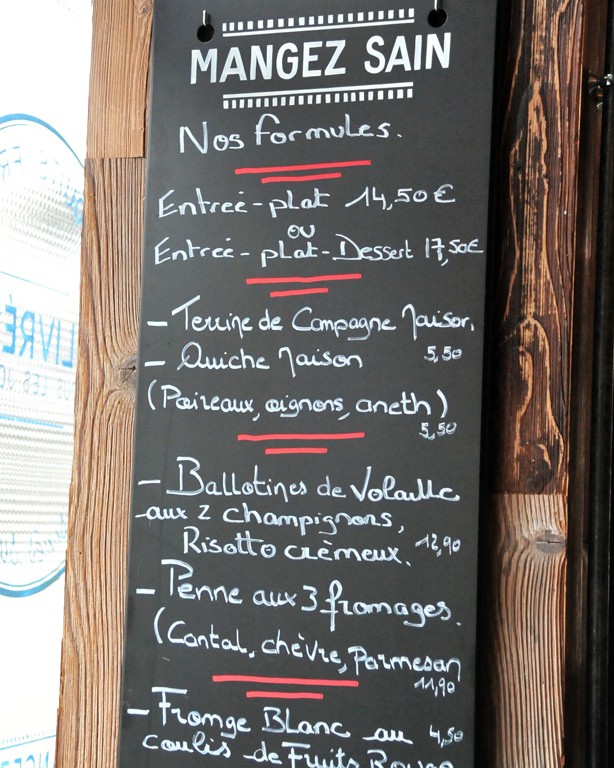 MANGEZ SAIN
Nos formules.
Entreé-plat 14,50€
ou
Entreé-plat-Dessert 17,50€
- Terrine de Campagne Maison.
5,50
- Quiche Maison
(Poireaux, oignons, aneth)
5,50
- Ballotines de Volaille
aux 2 champignons,
Risotto crèmeux. 12,90
- Penne aux 3 fromages.
(Cantal, chèvre, Parmesan
11,90
- Fromge Blanc au 4,50
coulis de Fruits Rouge
LIVRÉ